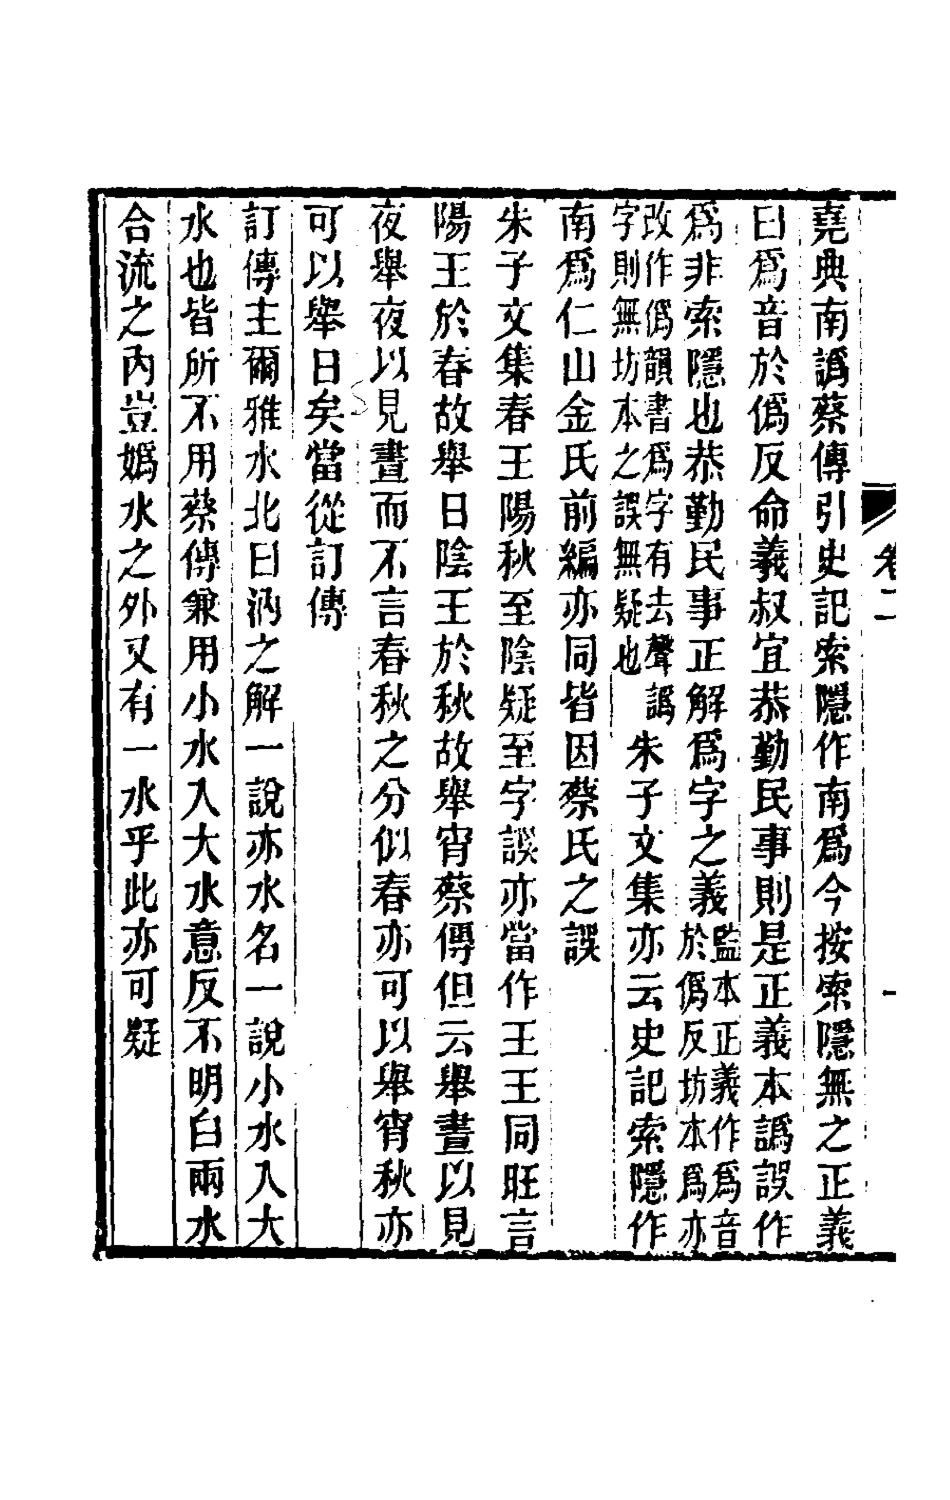 堯典南譌蔡傳引史記索隱作南爲今按索隱無之正義
曰爲音於僞反命羲叔宜恭勤民事則是正義本譌誤作
爲非索隱也恭勤民事正解爲字之義監本正義作爲音
於僞反坊本爲亦
改作僞韻書爲字有去聲譌
字則無坊本之誤無疑也朱子文集亦云史記索隱作
南爲仁山金氏前編亦同皆因蔡氏之誤
朱子文集春王陽秋至陰疑至字誤亦當作王王同旺言
陽王於春故舉日陰王於秋故舉宵蔡傳但云舉晝以見
夜舉夜以見晝而不言春秋之分似春亦可以舉宵秋亦
可以舉日矣當從訂傳
訂傳主爾雅水北曰汭之解一說亦水名一說小水入大
水也皆所不用蔡傳兼用小水入大水意反不明白兩水
合流之內豈嬀水之外又有一水乎此亦可疑
卷二
一